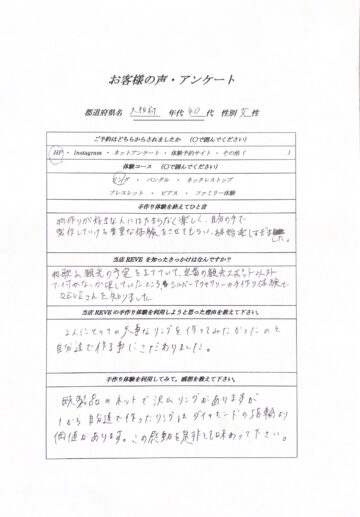 お客様の声・アンケート
都道府県名 大阪府 年代 40 代 性別 女 性
ご予約はどちらからされましたか (○で囲んでください)
HP ・ Instagram ・ ネットアンケート ・ 体験予約サイト ・ その他 ( )
体験コース (○で囲んでください)
リング ・ バングル ・ ネックレストップ
ブレスレット ・ ピアス ・ ファミリー体験
手作り体験を終えてひと言
物作りが好きな人にはたまらなく楽しく、自分の手で
製作していける貴重な体験をさせてもらい、終始
した。
当店 REVE を知ったきっかけはなんですか?
和歌山観光の予定を立てていて、定番の観光スポット以外
で何かないか探していたところ シルバーアクセサリーの手作り体験で
REVEさんを知りました
当店 REVE の手作り体験を利用しようと思った理由を教えて下さい。
2人にとっての大事なリングを作ってみたかったのと
自分達で作る事にこだわりました。
手作り体験を利用してみて。感想を教えて下さい。
既製品やネットで沢山リングがありますが
1から自分達で作ったリングはダイヤモンドの指輪より
価値があります。この感動を是非とも味わって下さい。